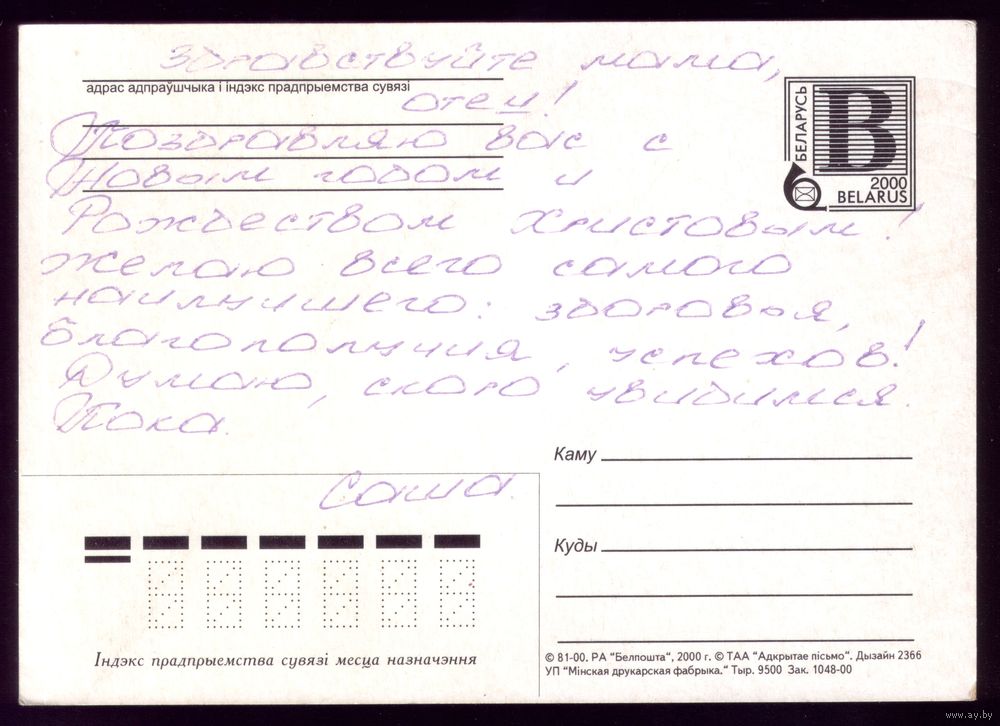 Здравствуйте мама,
адрас адпраўшчыка і індэкс прадпрыемства сувязі
отец!
Поздравляю вас с
Новым годом и
Рожеством Христовым!
Желаю всего самого
наилучшего: здоровья,
благополучия, успехов!
Думаю, скоро увидимся.
Пока.
Саша.
БЕЛАРУСЬ
B
2000
BELARUS
Каму
Куды
Індэкс прадпрыемства сувязі месца назначэння
© 81-00. РА "Белпошта", 2000 г. © ТАА "Адкрытае пісьмо". Дызайн 2366
УП "Мінская друкарская фабрыка." Тыр. 9500 Зак. 1048-00
www.ay.by